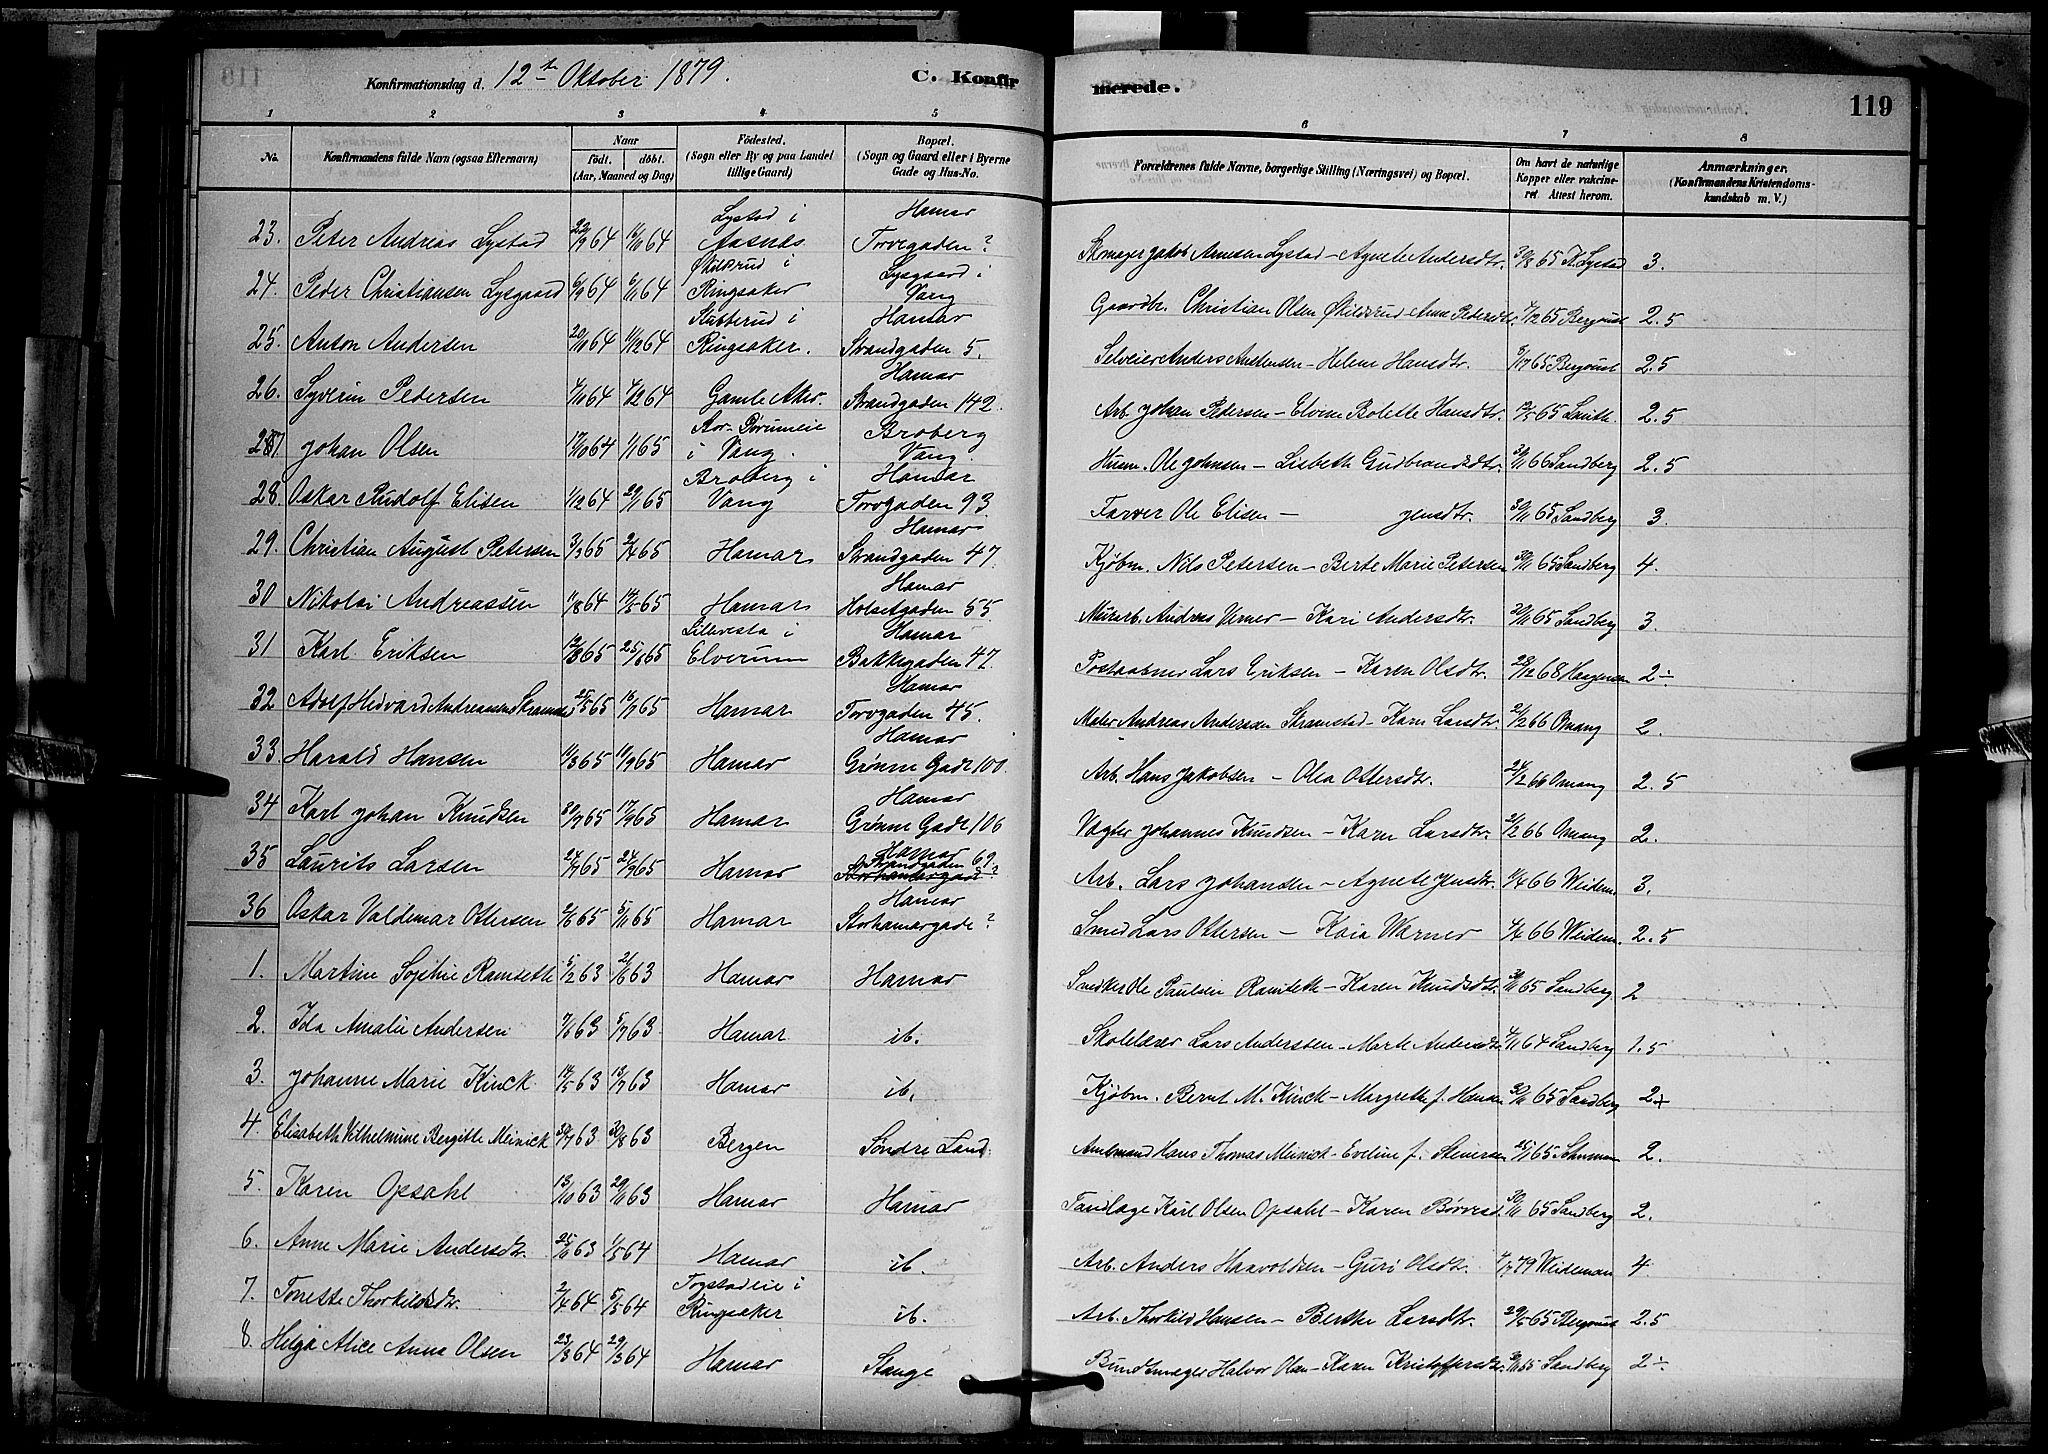 Konfirmationsdag d. 12te Oktober 1879. C. Konfirmerede. 119
1 2 3 4 5 6 7 8
No. Konfirmandens fulde Navn (ogsaa Efternavn) Naar födt. döbt. (Aar, Maaned og Dag) Födested. (Sogn eller By og paa Landet tillige Gaard) Bopæl. (Sogn og Gaard eller i Byerne Gade og Hus-No. Forældrenes fulde Navne, borgerlige Stilling (Næringsvei) og Bopæl. Om havt de naturlige Kopper eller vakcineret Attest herom. Anmærkninger. (Konfirmandens Kristendomskundskab m. V.)
23. Peter Andreas Lystad 22/9 64 16/10 64 Lystad i Aasnes Hamar Torvegaden ? Skomager Jakob Arnesen Lystad - Agnete Andersdtr. 65 K. Lystad 3.
24. Peder Christiansen Lysgaard 6/9 64 6/11 64 Økilsrud i Ringsaker Lysgaard i Vang Gaardbr. Christian Olsen Økilsrud Anne Pedersdtr. 65 Bergquist 2.5
25. Anton Andersen 20/10 64 11/12 64 Stubberud i Ringsaker. Hamar Strandgaden 5. Selveier Anders - Helene Hansdtr. 65 Bergquist 2.5
26. Syverin Pedersen 4/10 64 4/12 64 Gamle Aker. Hamar Strandgaden 142. Arb. Johan Pedersen - Elvine Bolette Hansdtr. 65 2.5
27. Johan Olsen 17/10 64 1/1 65 i Vang. Broberg Vang. Husm. Ole Johnsen - Lisbeth Gudbrandsdtr. 30/11 66 Sandberg 2.5
28. Oskar Rudolf Elisen 1/12 64 29/1 65 Broberg i Vang Hamar Torvgaden 93. Farver Ole Elisen - Jensdtr. 30/11 65 Sandberg 3.
29. Christian August Petersen 3/3 65 2/4 65 Hamar Hamar Strandgaden 47. Kjøbm. Nils Petersen - Berte Marie Petersen 30/11 65 Sandberg 4.
30 Nikolai Andreassen 11/8 64 14/5 65 Hamar Hamar Holsetgaden 55. Murarb. Andreas Verner - Kari Andersdtr. 30/11 65 Sandberg 3.
31 Karl Eriksen 65 65 i Elverum Hamar Bakkegaden 47. Postaabner Lars Eriksen - Karen Olsdtr. 28/12 68 2÷
32 Adolf Hedvard Andreassen 25/5 65 16/7 65 Hamar Hamar Torvgaden 45. Maler Andreas Andersen Stramstad - Karn Larsdtr. 21/2 66 Omang 2.
33. Harald Hansen 11/3 65 11/9 65 Hamar Hamar Grønne Gade 100. Arb. Hans Jakobsen - Olea Ottersdtr. 66 Omang 2.5
34 Karl Johan Knudsen 30/7 65 17/9 65 Hamar Hamar Grønne Gade 106 Vagter Johannes Knudsen - Karn Larsdtr. 66 Omang 2.
35 Laurits Larsen 24/7 65 24/9 65 Hamar Hamar Strandgaden 69. Storhamargade ? Arb. Lars Johansen - Agnete Jensdtr. 1/4 66 Weidem. 3.
36 Oskar Valdemar Ottersen 2/6 65 5/11 65 Hamar Hamar Storhamargade ? Smed Lars Ottersen - Kaia Warner 4/4 66 Weidem. 2.5
1. Martine Sophie Ramseth 5/2 63 21/6 63 Hamar Hamar Snedker Ole Paulsen Ramseth - Karen Knudsdtr. 30/11 65 Sandberg 2
2. Ida Amalie Andersen 7/6 63 5/7 63 Hamar. ib. Skolelærer Lars Anderssen - Marte Andersdtr. 4/11 64 Sandberg 1.5
3. Johanne Marie Kinck 14/5 63 13/7 63 Hamar ib. Kjøbm. Bernt M. Kinck - Margrethe f. Hansen 30/11 65 Sandberg 2÷
4. Elisabeth Vilhelmine Bergitte Meinich 30/7 63 30/8 63 Bergen Søndre Land. Amtmand Hans Thomas Meinich - Eveline f. 65 2.
5. Karen Opsahl 13/10 63 29/11 63 Hamar Hamar Tandlæge Karl Olsen Opsahl - Karen 30/11 65 Sandberg 2.
6. Anne Marie Andersdtr. 63 1/5 64 Hamar ib. Arb. Anders Haavoldsen - Guri Olsdtr. 79 Weideman 4.
7. Tonette Thorkildsdtr. 2/4 64 5/5 64 Togstadeie i Ringsaker ib. Arb. Thorkild Hansen - Berthe Larsdtr. 65 Bergquist 2.5
8. Helga Alice Anna Olsen 23/3 64 29/3 64 Hamar Stange Bundtmager Halvor Olsen - Karen Kristoffersdtr. 65 Sandberg 2÷